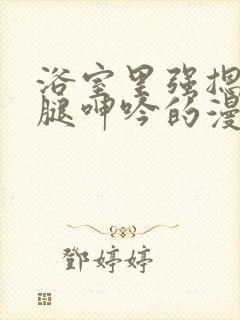 浴室里强摁
腿呻吟的漫
鄧婷婷